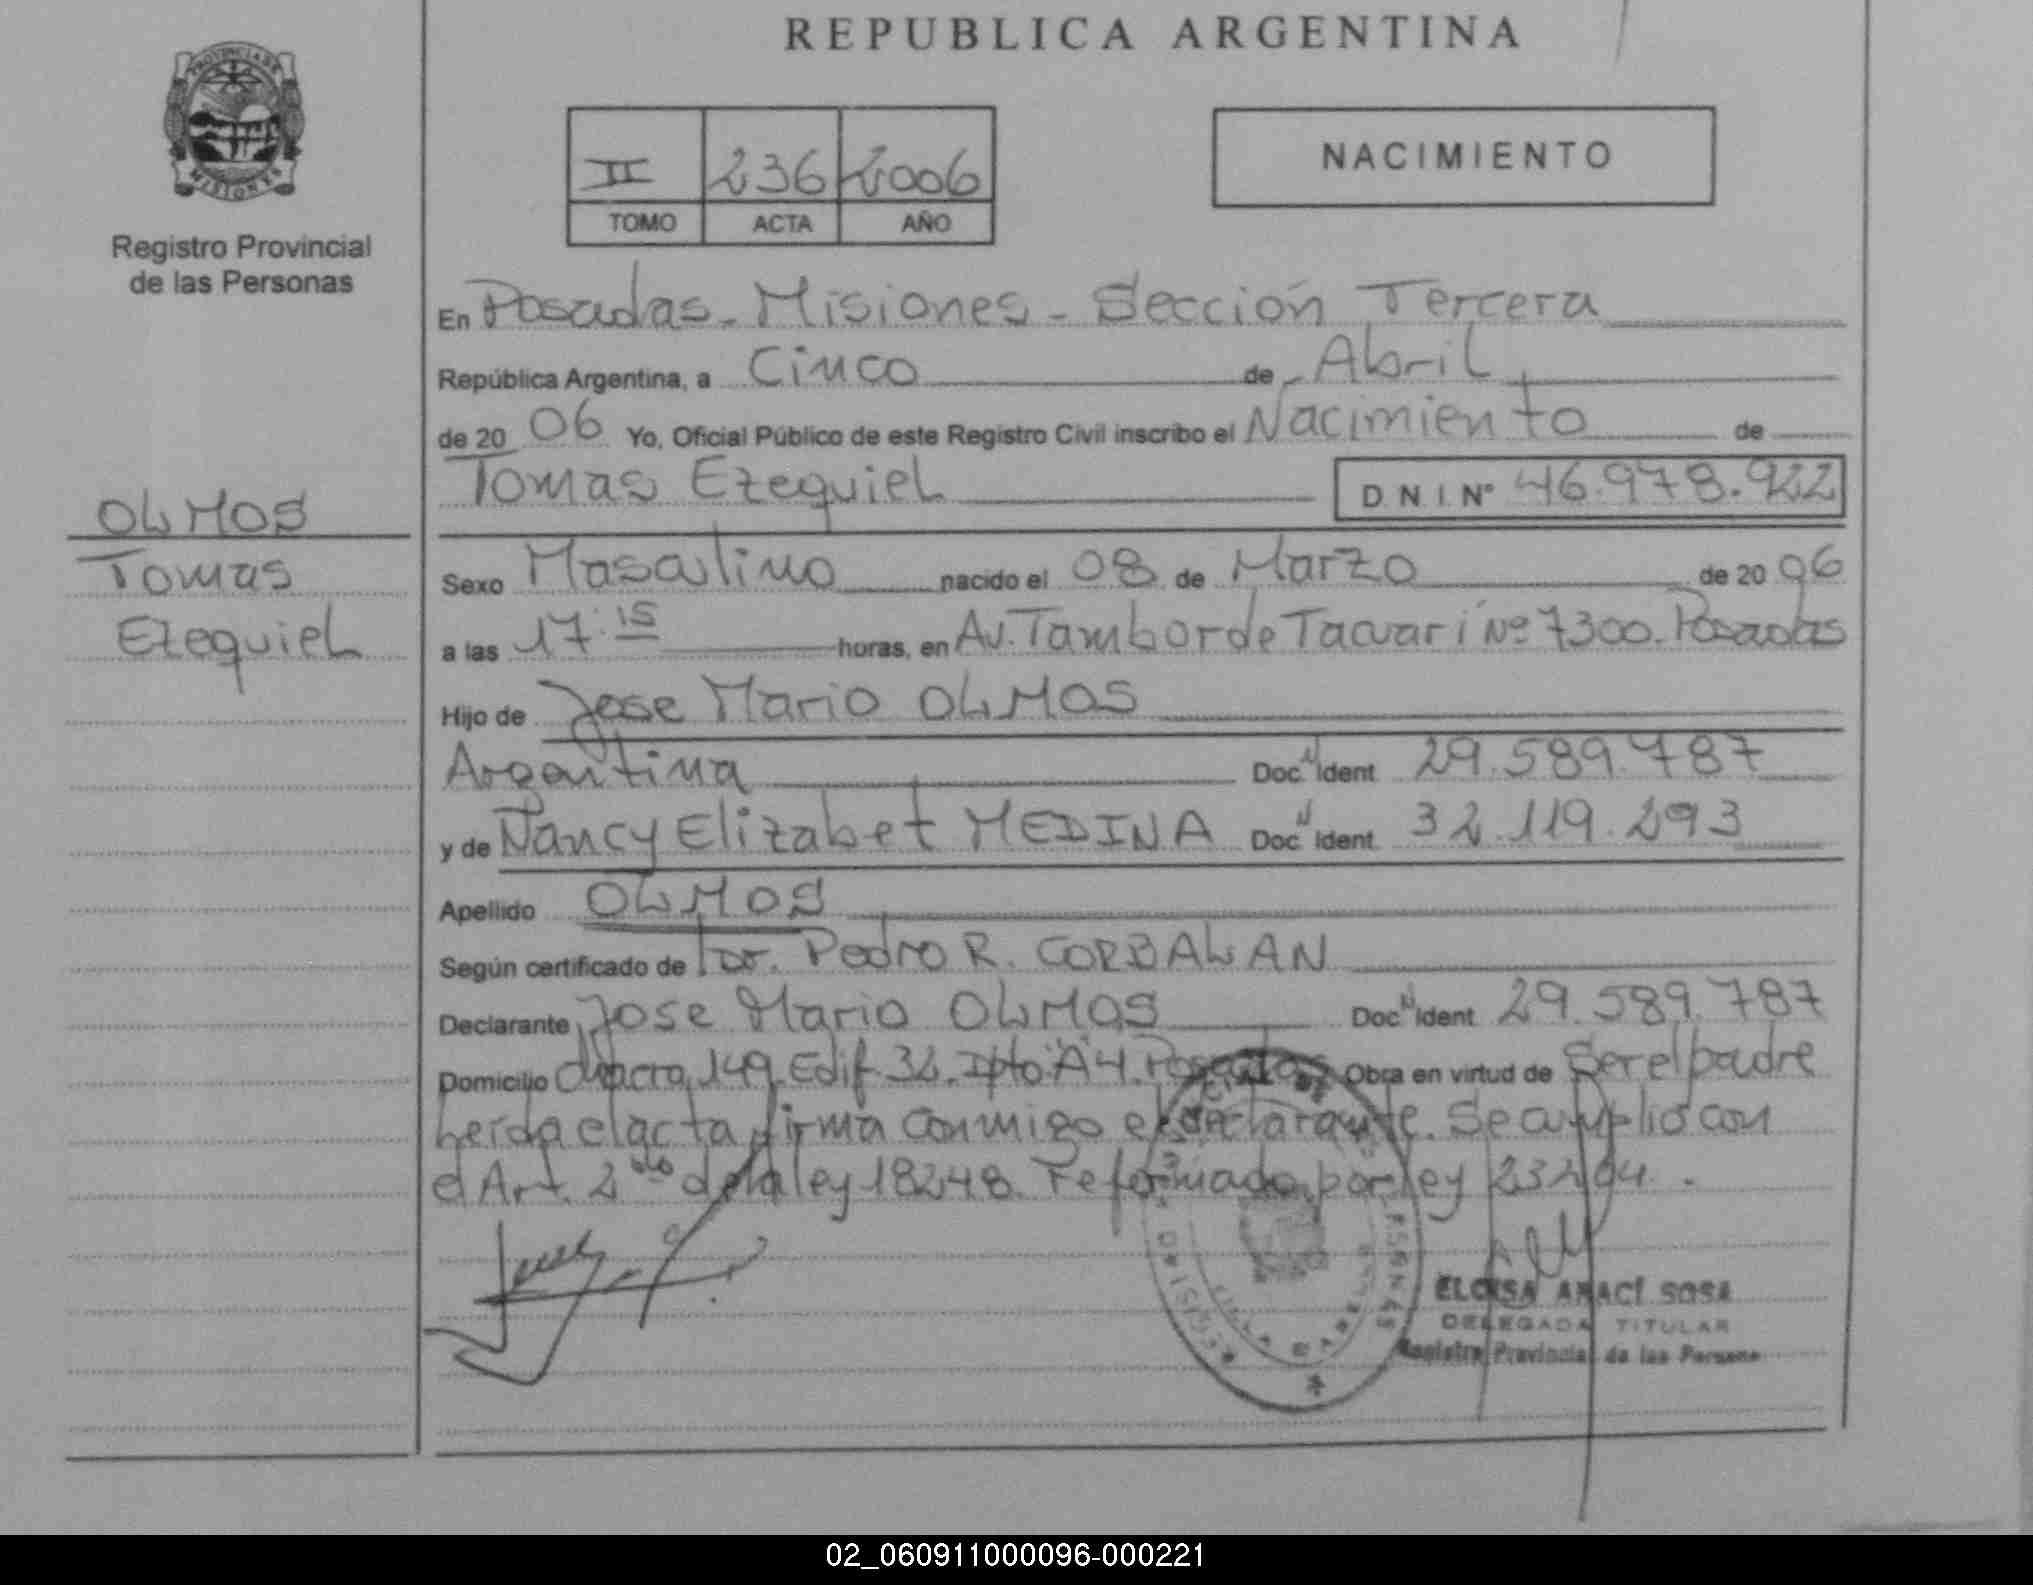 REPUBLICA ARGENTINA
PROVINCIA DE
MISIONES
Registro Provincial
de las Personas
II 236 2006
TOMO ACTA AÑO
NACIMIENTO
En Posadas - Misiones - Sección Tercera
República Argentina, a Cinco de Abril
de 20 06 Yo, Oficial Público de este Registro Civil inscribo el Nacimiento de
Tomas Ezequiel D.N.I. Nº 46.978.922
OLMOS
Tomas
Ezequiel
Sexo Masculino nacido el 08 de Marzo de 20 06
a las 17:15 horas, en Av. Tambor de Tacuarí Nº 7300. Posadas
Hijo de Jose Mario OLMOS
Argentina Doc. N Ident 29.589.787
y de Nancy Elizabet MEDINA Doc. N Ident. 32.119.293
Apellido OLMOS
Según certificado de Dr. Pedro R. CORBALAN
Declarante Jose Mario OLMOS Doc. N Ident 29.589.787
Domicilio chacra 149. Edif. 32. Dpto "A" 4. Posadas Obra en virtud de Ser el padre
Leída el acta firma conmigo el declarante. Se cumplió con
el Art. 2do de la ley 18248. Reformado por ley 23264.
ELOISA ARACI SOSA
DELEGADA TITULAR
Registro Provincial de las Persona
02_060911000096-000221